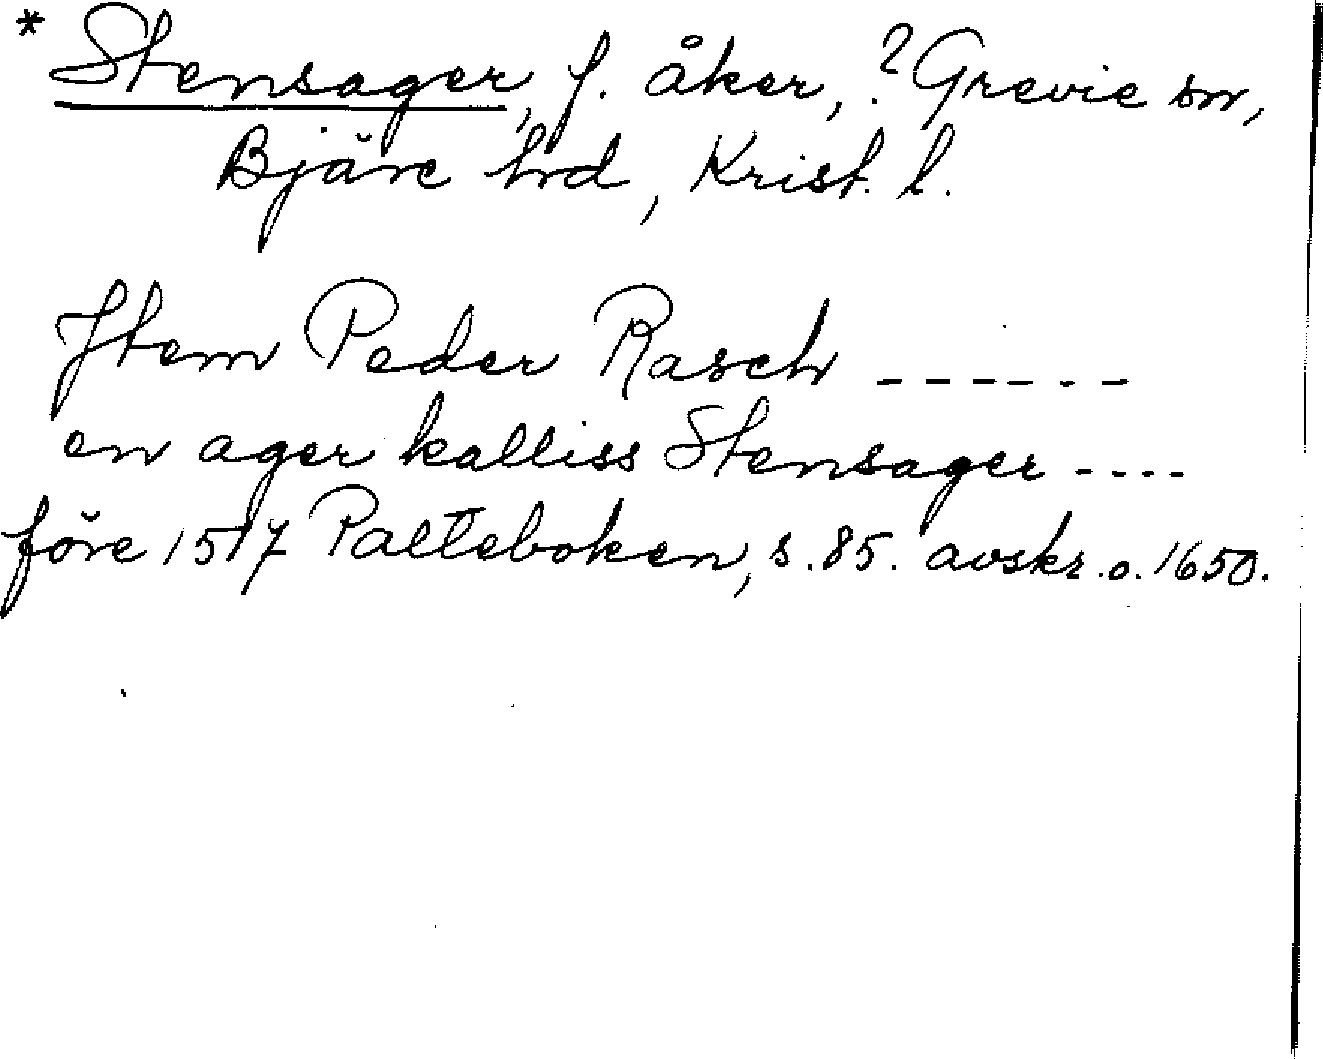 * Stensager, f. åker, ? Grevie sn,
Bjäre hrd, Krist. l.
Item Peder Rasch ------
en ager kalliss Stensager ----
före 1517 Palteboken, s. 85. avskr. o. 1650.